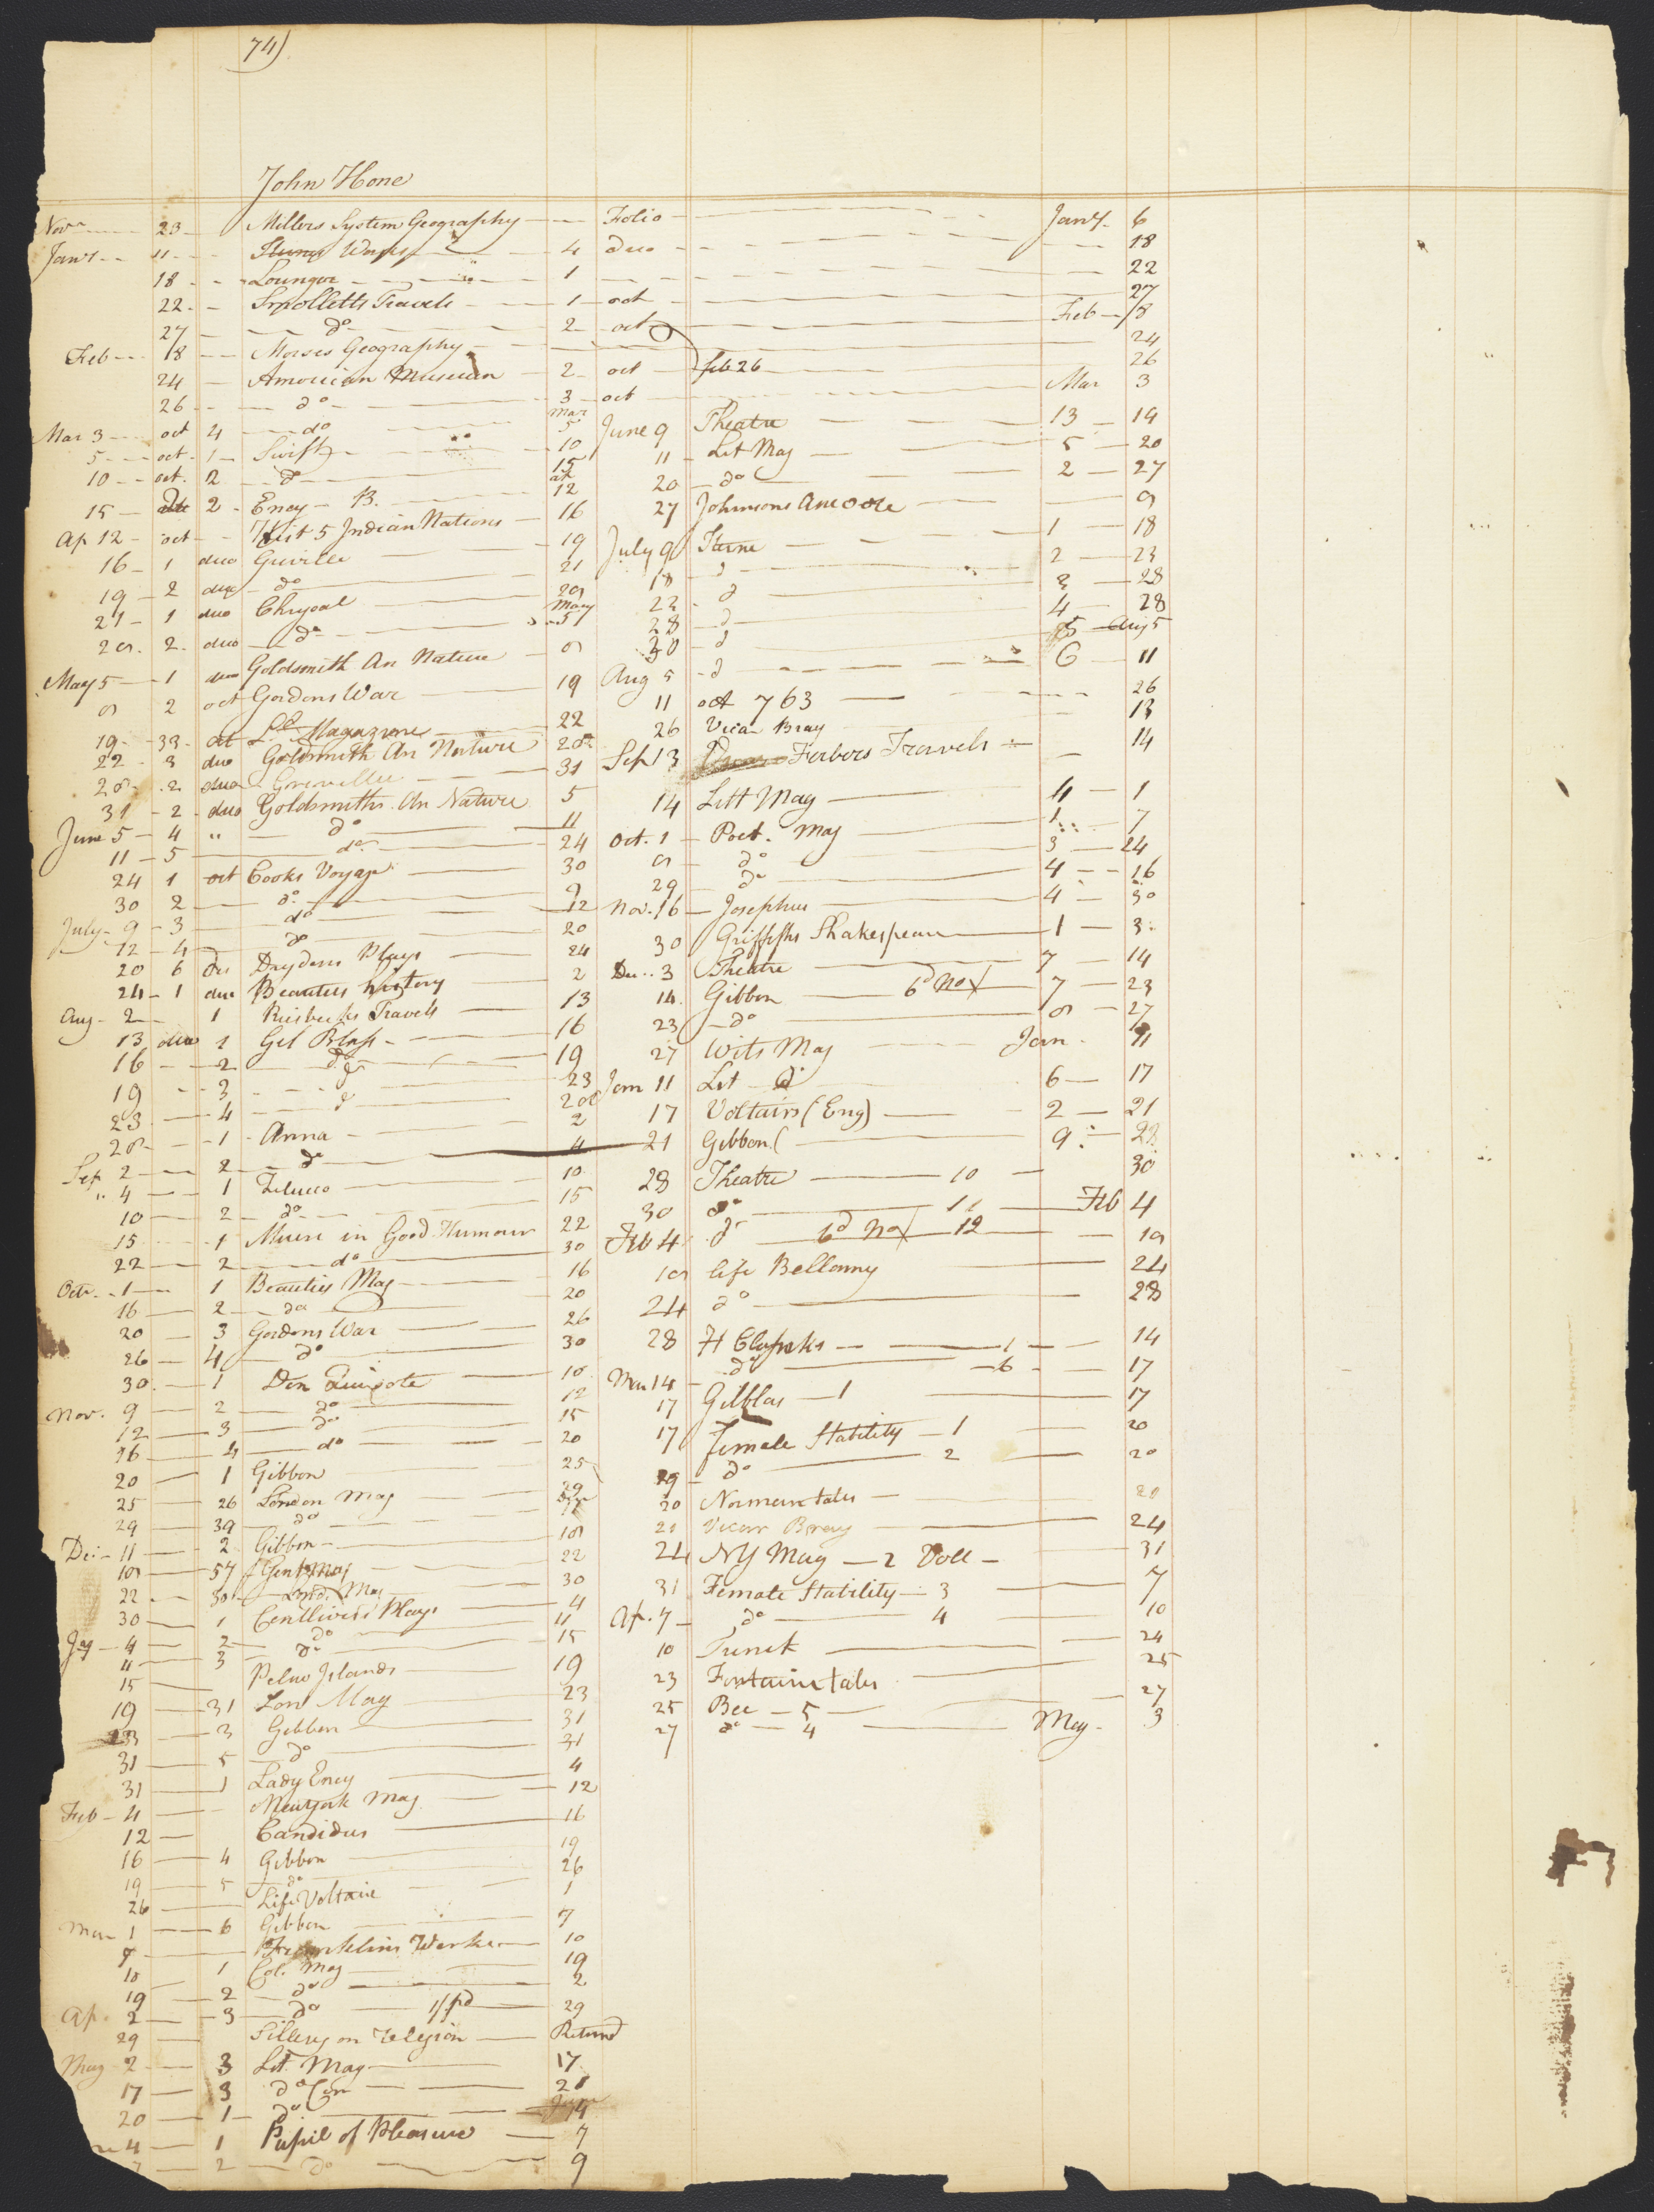 74)
John Hone
Nov 23 Millers System Geography Folio Jany 6
Jany 11 Works 4 duo 18
18 Lounger 1 22
22 Smolletts Travels 1 oct 27
27 do 2 oct Feb 18
Feb 18 Morses Geography 24
24 American Museum 2 oct feb 26 26
26 do 3 oct Mar 3
Mar 3 oct 4 do Mar 5
5 oct 1 Swift 10
10 oct 2 do 15
15 2 Ency B. ap 12
Ap 12 oct Hist 5 Indian Nations 16
16 1 duo Greville 19
19 2 duo do 21
21 1 duo Chrysal 28
28 2 duo do May 5
May 5 1 duo Goldsmith An Nature 8
8 2 oct Gordons War 19
19 33 oct Magazine 22
22 3 duo Goldsmith An Nature 28
28 2 duo Greville 31
31 2 duo Goldsmiths An Nature 5
June 5 4 " do 11
11 5 do 24
24 1 oct Cooks Voyage 30
30 2 do 9
July 9 3 do 12
12 4 do 20
20 6 Drydens Plays 24
24 1 duo Beauties history 2
Aug 2 1 Travels 13
13 duo 1 Gil Blass 16
16 2 do 19
19 3 d 23
23 4 d 28
28 1 Anna 2
Sep 2 2 do 4
" 4 1 Zeluco 10
10 2 do 15
15 1 Muse in Good Humour 22
22 2 do 30
Oct 1 1 Beauties Mag 16
16 2 do 20
20 3 Gordons War 26
26 4 do 30
30 1 Don Quixote 10
Nov. 9 2 do 12
12 3 do 15
16 4 do 20
20 1 Gibbon 25
25 26 London Mag 29
29 39 do
Dec 11 2 Gibbon 18
18 57 Gent Mag 22
22 30 Lond. Mag 30
30 1 Centlivers Plays 4
Jay 4 2 do 11
11 3 do 15
15 Pelew Islands 19
19 31 Lon Mag 23
23 3 Gibbon 31
31 5 do 31
31 1 Lady Ency 4
Feb 4 Newyork Mag 12
12 Candidus 16
16 4 Gibbon 19
19 5 do 26
26 Life Voltaire 1
Mar 1 6 Gibbon 7
7 Franklins Works 10
10 1 Col. Mag 19
19 2 do 2
Ap. 2 3 do 1/ pd 29
29 Sillery on Religion Returnd
May 2 3 Lit. Mag 17
17 3 do Con 20
20 1 do
4 1 Pupil of Pleasure 7
7 2 do 9
June 9 Theatre 13 14
11 Lit Mag 5 20
20 do 2 27
27 Johnsons 9
July 9 Sterne 1 18
18 d 2 23
23 d 3 28
28 d 4 28
30 d 5 Aug 5
Aug 5 d 6 11
11 oct 763 26
26 Vicar Bray 13
Sep 13 Ferbers Travels 14
14 Litt Mag 4 1
Oct. 1 Poet. Mag 1 7
8 do 3 24
29 do 4 16
Nov. 16 Josephus 4 30
30 Griffiths Shakespeare 1 3
Dec. 3 Theatre 7 14
14 Gibbon 6d nox 7 23
23 do 8 27
27 Wits Mag Jan 11
Jan 11 Lit do 6 17
17 Voltairs (Eng) 2 21
21 Gibbon ( 9 28
28 Theatre 10 30
30 do 11 Feb 4
Feb 4 do 6d nox 12 18
18 life Bellamy 24
24 do 28
28 H 1 14
Mar 14 do 6 17
17 Gilblas 1 17
17 Female Stability 1 20
19 do 2 20
20 Norman tales 20
21 Vicar Bray 24
24 NY Mag 2 Voll 31
31 Female Stability 3 7
Ap. 7 do 4 10
10 Trenck 24
23 Fontaine tales 25
25 Bee 5 27
27 do 4 May 3